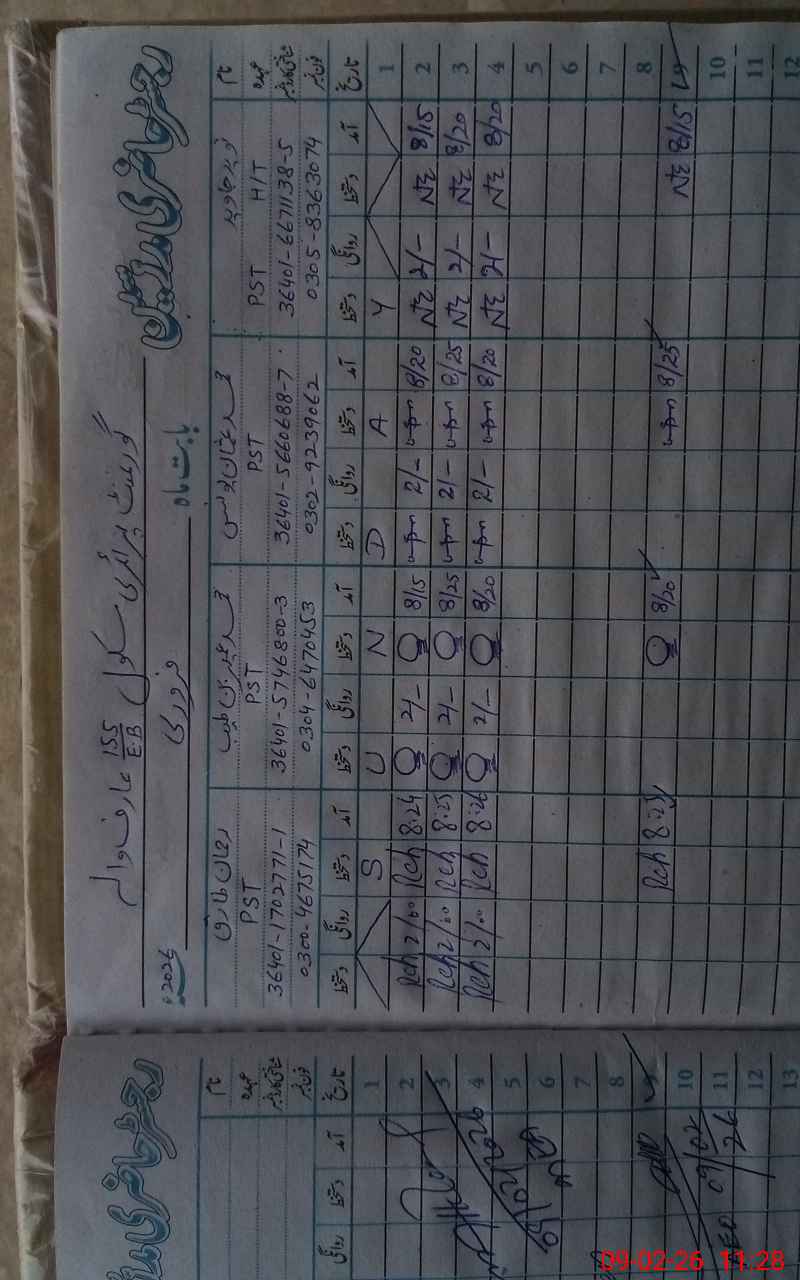 رجسٹر حاضری مدرسین
گورنمنٹ پرائمری سکول 155/E.B عارف والہ
بابت ماہ فروری 2026ء
نام نوید جاوید محمد عثمان یونس رحمان طارق
عہدہ PST HIT PST PST PST
شناختی کارڈ نمبر 36401-6671138-5 36401-5660688-7 36401-5746800-3 36401-1702771-1
فون نمبر 0305-8363074 0302-9239062 0304-6470453 0300-4675174
تاریخ آمد دستخط روانگی دستخط آمد دستخط روانگی دستخط آمد دستخط روانگی دستخط آمد دستخط روانگی دستخط
1 Y A D N U S
2 8/15 2/- 8/20 2/- 8/15 2/- 8:24 Rch 2/00 Rch
3 8/20 2/- 8/25 2/- 8/25 2/- 8:25 Rch 2/00 Rch
4 8/20 2/- 8/20 2/- 8/20 2/- 8:26 Rch 2/00 Rch
5
6
7
8
8/15 8/25 8/20 8:25 Rch
10
11
12
رجسٹر حاضری
نام
عہدہ
شناختی کارڈ نمبر
فون نمبر
تاریخ آمد دستخط روانگی
1
2
3
4
5
6
7
8
10
11
12
13
09/02/2026
09/02/26
09-02-26 11:28